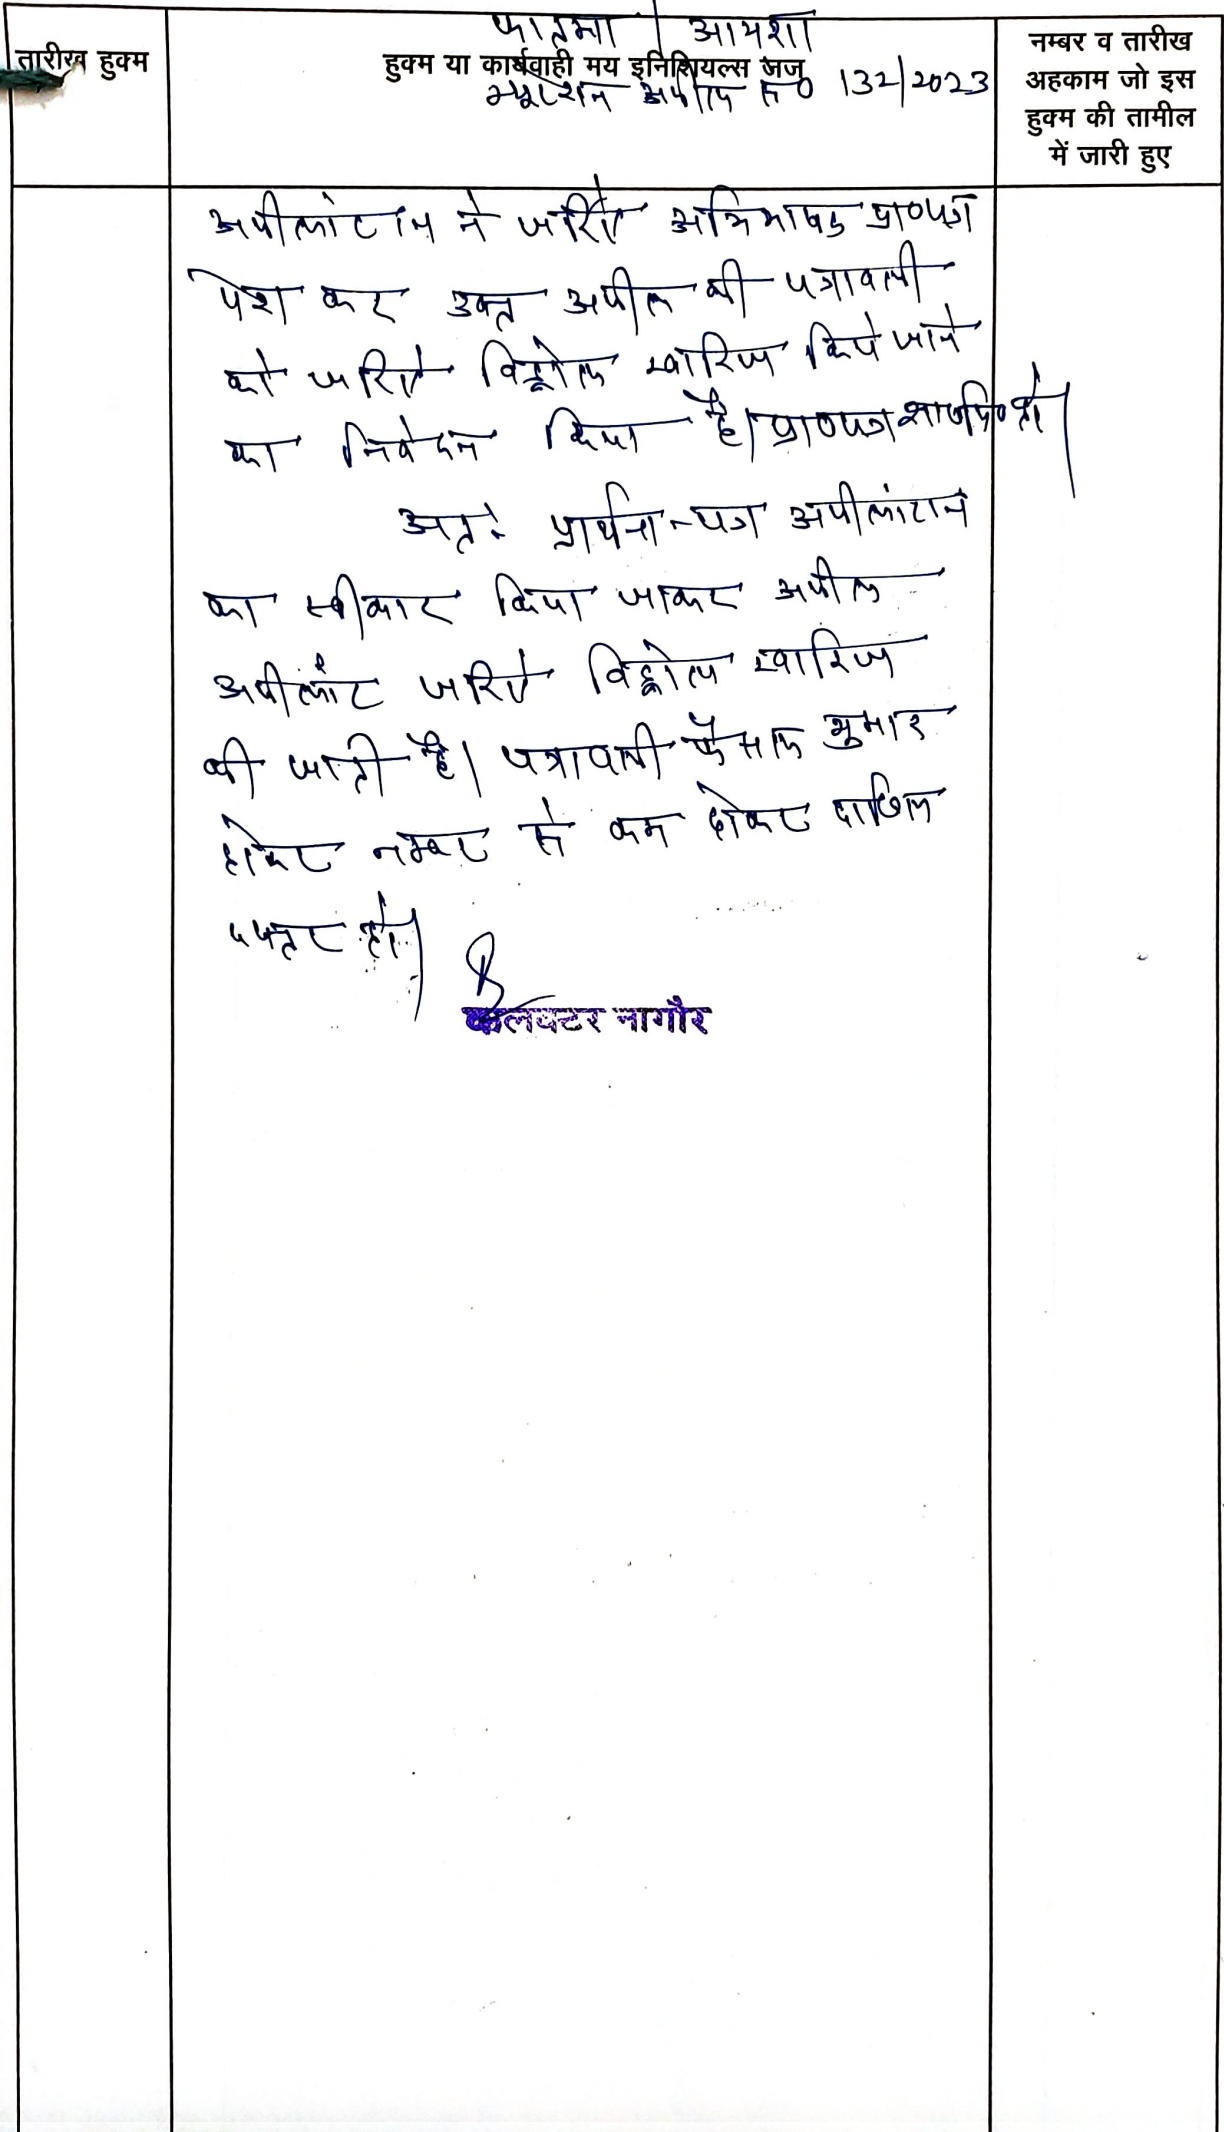 फातमा / आयशा
तारीख हुक्म
हुक्म या कार्यवाही मय इनिशियल्स जज
म्यूटेशन अपील सं0 132/2023
नम्बर व तारीख
अहकाम जो इस
हुक्म की तामील
में जारी हुए
अपीलांटान ने जरिये अभिभाषक प्रा०पत्र
पेश कर उक्त अपील की पत्रावली
को जरिये विड्रोल खारिज किये जाने
का निवेदन किया है। प्रा०पत्र शा०मि० हो।
अतः प्रार्थना-पत्र अपीलांटान
का स्वीकार किया जाकर अपील
अपीलांट जरिये विड्रोल खारिज
की जाती है। पत्रावली फैसल शुमार
होकर नम्बर से कम होकर दाखिल
दफ्तर हो।
कलक्टर नागौर